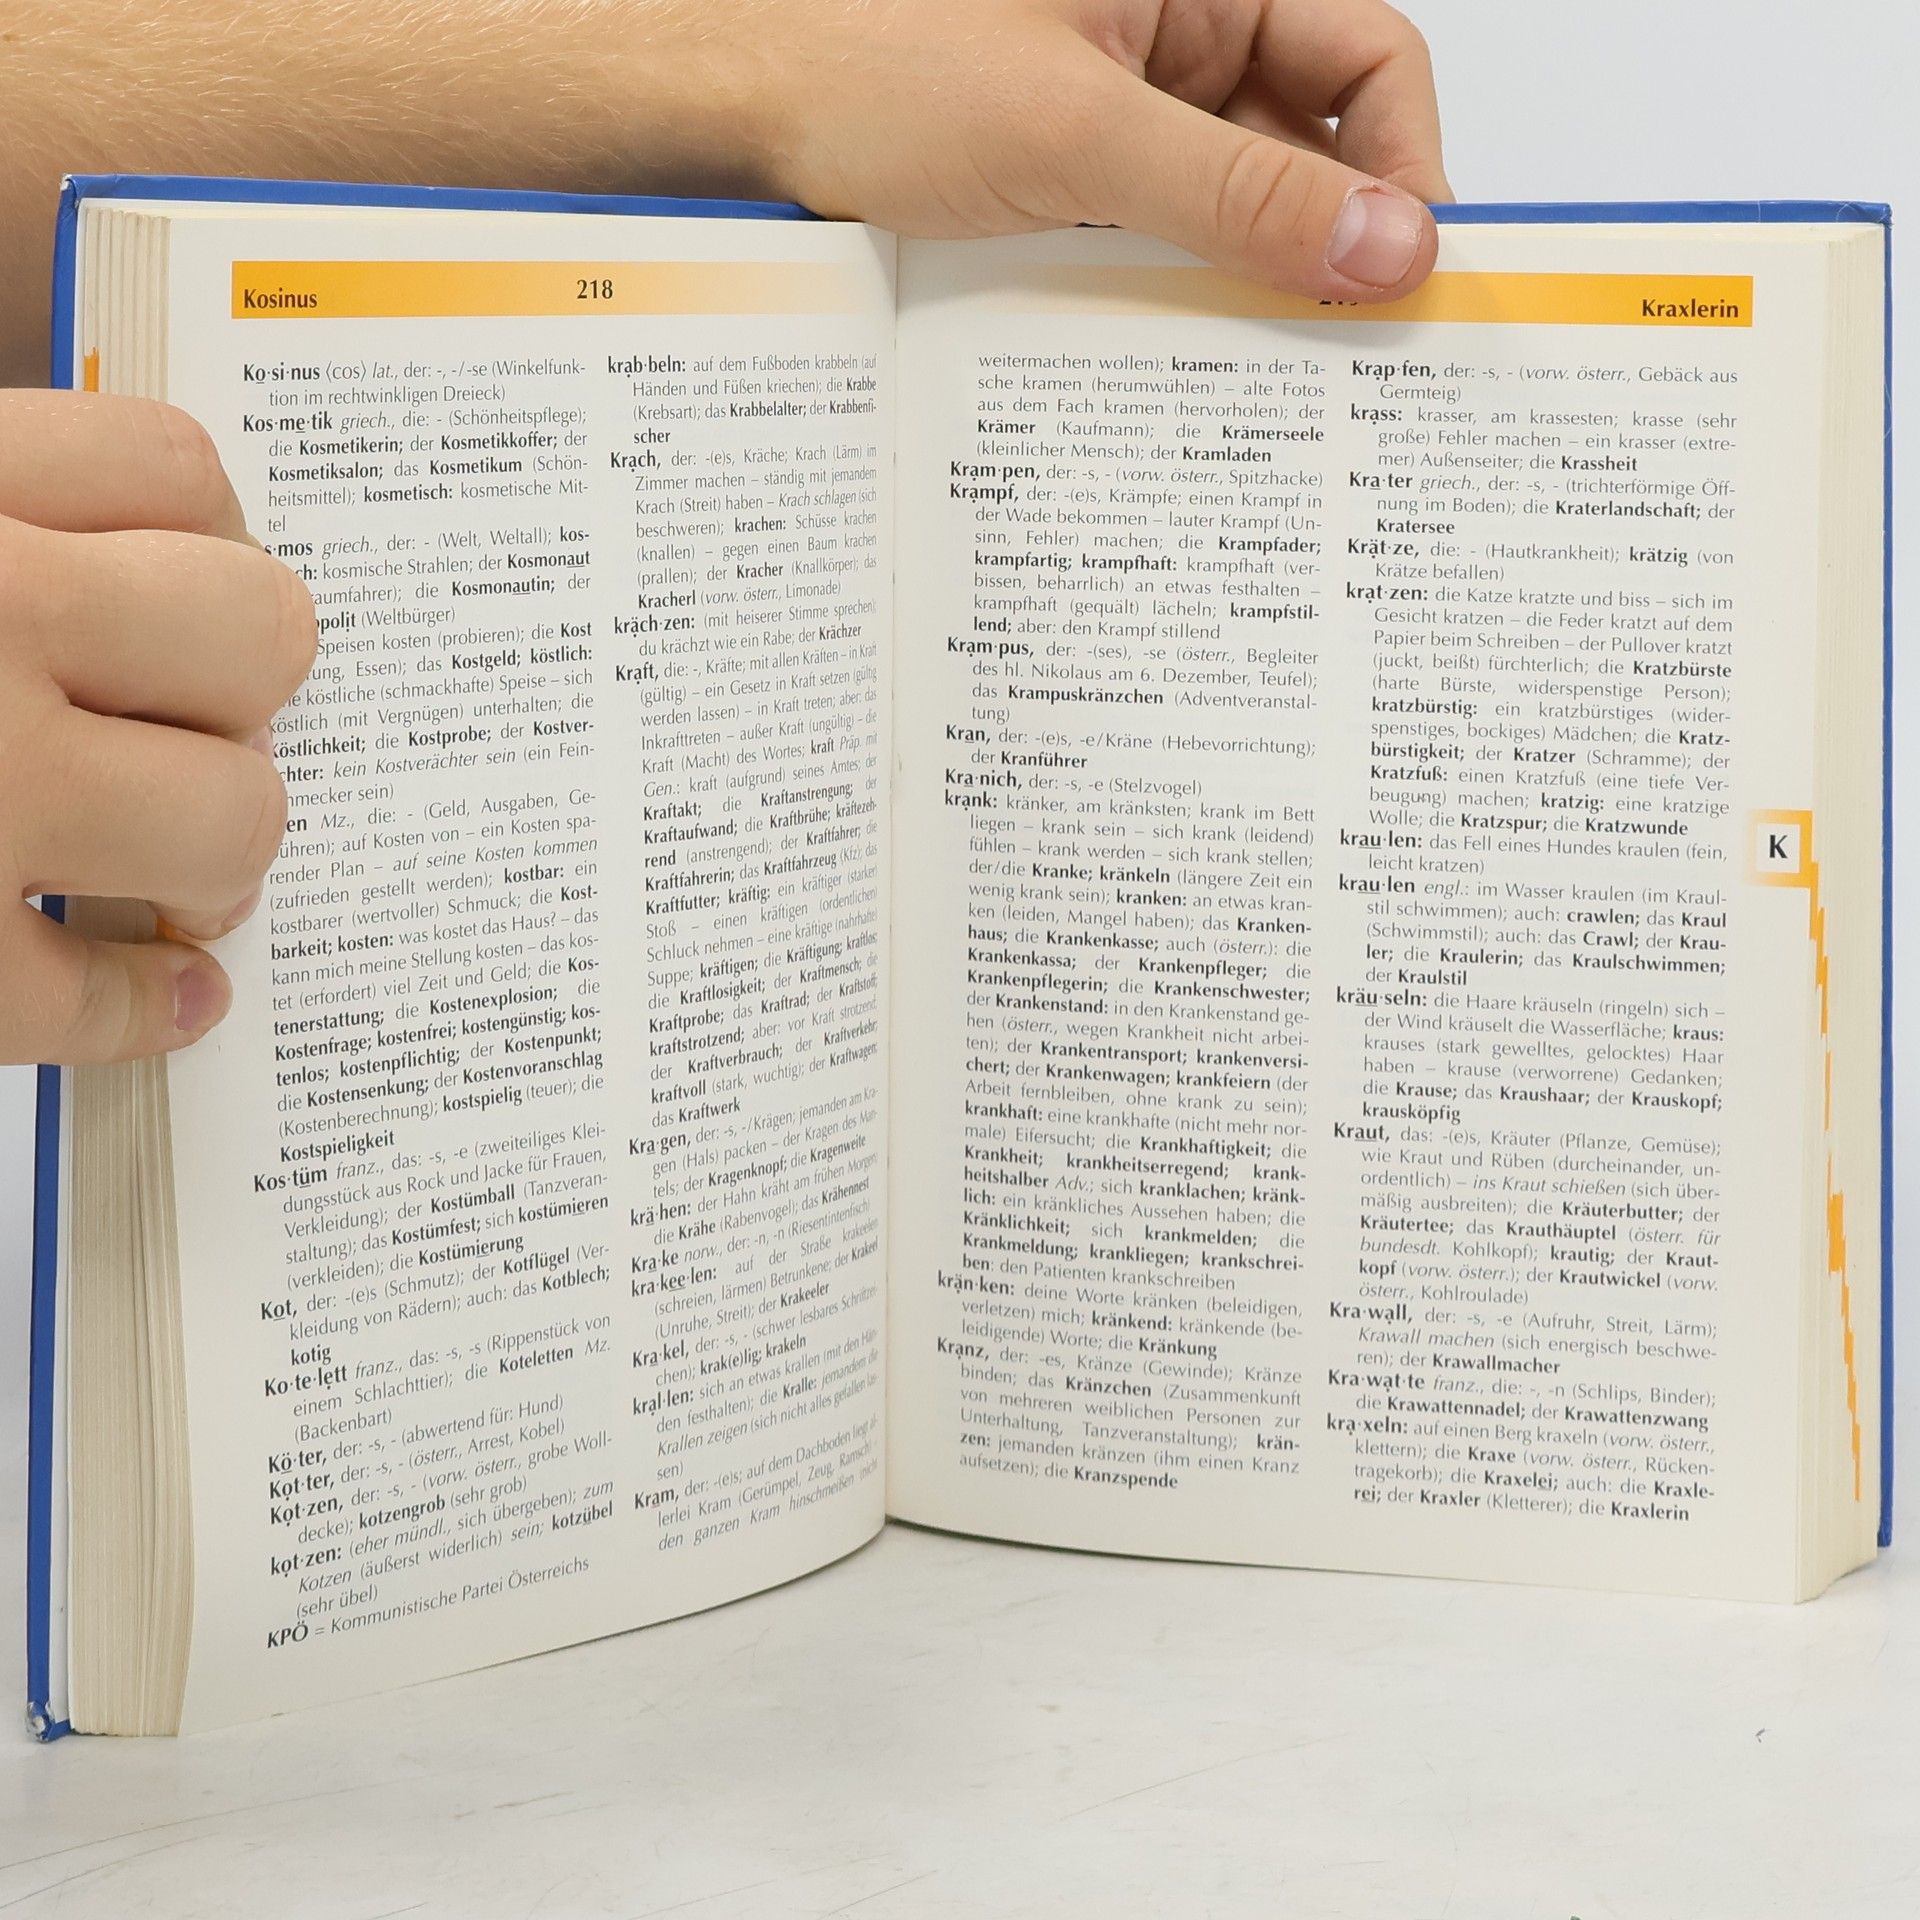 Kosinus
218
Ko·si·nus ⟨cos⟩ lat., der: -, -/-se (Winkelfunk-
tion im rechtwinkligen Dreieck)
Kos·me·tik griech., die: - (Schönheitspflege);
die Kosmetikerin; der Kosmetikkoffer; der
Kosmetiksalon; das Kosmetikum (Schön-
heitsmittel); kosmetisch: kosmetische Mit-
tel
griech., der: - (Welt, Weltall); kos-
kosmische Strahlen; der Kosmonaut
die Kosmonautin; der
(Weltbürger)
Speisen kosten (probieren); die Kost
Essen); das Kostgeld; köstlich:
köstliche (schmackhafte) Speise – sich
köstlich (mit Vergnügen) unterhalten; die
Köstlichkeit; die Kostprobe; der Kostver-
kein Kostverächter sein (ein Fein-
sein)
Mz., die: - (Geld, Ausgaben, Ge-
auf Kosten von – ein Kosten spa-
render Plan – auf seine Kosten kommen
(zufrieden gestellt werden); kostbar: ein
kostbarer (wertvoller) Schmuck; die Kost-
barkeit; kosten: was kostet das Haus? – das
kann mich meine Stellung kosten – das kos-
tet (erfordert) viel Zeit und Geld; die Kos-
tenerstattung; die Kostenexplosion; die
Kostenfrage; kostenfrei; kostengünstig; kos-
tenlos; kostenpflichtig; der Kostenpunkt;
die Kostensenkung; der Kostenvoranschlag
(Kostenberechnung); kostspielig (teuer); die
Kostspieligkeit
Kos·tüm franz., das: -s, -e (zweiteiliges Klei-
dungsstück aus Rock und Jacke für Frauen,
Verkleidung); der Kostümball (Tanzveran-
staltung); das Kostümfest; sich kostümieren
(verkleiden); die Kostümierung
Kot, der: -(e)s (Schmutz); der Kotflügel (Ver-
kleidung von Rädern); auch: das Kotblech;
kotig
Ko·te·lett franz., das: -s, -s (Rippenstück von
einem Schlachttier); die Koteletten Mz.
(Backenbart)
Kö·ter, der: -s, - (abwertend für: Hund)
Kot·ter, der: -s, - (österr., Arrest, Kobel)
Kot·zen, der: -s, - (vorw. österr., grobe Woll-
decke); kotzengrob (sehr grob)
kot·zen: (eher mündl., sich übergeben); zum
Kotzen (äußerst widerlich) sein; kotzübel
(sehr übel)
KPÖ = Kommunistische Partei Österreichs
krab·beln: auf dem Fußboden krabbeln (auf
Händen und Füßen kriechen); die Krabbe
(Krebsart); das Krabbelalter; der Krabbenfi-
scher
Krach, der: -(e)s, Kräche; Krach (Lärm) im
Zimmer machen – ständig mit jemandem
Krach (Streit) haben – Krach schlagen (sich
beschweren); krachen: Schüsse krachen
(knallen) – gegen einen Baum krachen
(prallen); der Kracher (Knallkörper); das
Kracherl (vorw. österr., Limonade)
kräch·zen: (mit heiserer Stimme sprechen);
du krächzt wie ein Rabe; der Krächzer
Kraft, die: -, Kräfte; mit allen Kräften – in Kraft
(gültig) – ein Gesetz in Kraft setzen (gültig
werden lassen) – in Kraft treten; aber: das
Inkrafttreten – außer Kraft (ungültig) – die
Kraft (Macht) des Wortes; kraft Präp. mit
Gen.: kraft (aufgrund) seines Amtes; der
Kraftakt; die Kraftanstrengung; der
Kraftaufwand; die Kraftbrühe; kräftezeh-
rend (anstrengend); der Kraftfahrer; die
Kraftfahrerin; das Kraftfahrzeug (Kfz); das
Kraftfutter; kräftig: ein kräftiger (starker)
Stoß – einen kräftigen (ordentlichen)
Schluck nehmen – eine kräftige (nahrhafte)
Suppe; kräftigen; die Kräftigung; kraftlos;
die Kraftlosigkeit; der Kraftmensch; die
Kraftprobe; das Kraftrad; der Kraftstoff;
kraftstrotzend; aber: vor Kraft strotzend;
der Kraftverbrauch; der Kraftverkehr;
kraftvoll (stark, wuchtig); der Kraftwagen;
das Kraftwerk
Kra·gen, der: -s, -/Krägen; jemanden am Kra-
gen (Hals) packen – der Kragen des Man-
tels; der Kragenknopf; die Kragenweite
krä·hen: der Hahn kräht am frühen Morgen;
die Krähe (Rabenvogel); das Krähennest
Kra·ke norw., der: -n, -n (Riesentintenfisch)
kra·kee·len: auf der Straße krakeelen
(schreien, lärmen) Betrunkene; der Krakeel
(Unruhe, Streit); der Krakeeler
Kra·kel, der: -s, - (schwer lesbares Schriftzei-
chen); krak(e)lig; krakeln
kral·len: sich an etwas krallen (mit den Hän-
den festhalten); die Kralle: jemandem die
Krallen zeigen (sich nicht alles gefallen las-
sen)
Kram, der: -(e)s; auf dem Dachboden liegt al-
lerlei Kram (Gerümpel, Zeug, Ramsch) –
den ganzen Kram hinschmeißen (nicht
Kraxlerin
weitermachen wollen); kramen: in der Ta-
sche kramen (herumwühlen) – alte Fotos
aus dem Fach kramen (hervorholen); der
Krämer (Kaufmann); die Krämerseele
(kleinlicher Mensch); der Kramladen
Kram·pen, der: -s, - (vorw. österr., Spitzhacke)
Krampf, der: -(e)s, Krämpfe; einen Krampf in
der Wade bekommen – lauter Krampf (Un-
sinn, Fehler) machen; die Krampfader;
krampfartig; krampfhaft: krampfhaft (ver-
bissen, beharrlich) an etwas festhalten –
krampfhaft (gequält) lächeln; krampfstil-
lend; aber: den Krampf stillend
Kram·pus, der: -(ses), -se (österr., Begleiter
des hl. Nikolaus am 6. Dezember, Teufel);
das Krampuskränzchen (Adventveranstal-
tung)
Kran, der: -(e)s, -e/Kräne (Hebevorrichtung);
der Kranführer
Kra·nich, der: -s, -e (Stelzvogel)
krank: kränker, am kränksten; krank im Bett
liegen – krank sein – sich krank (leidend)
fühlen – krank werden – sich krank stellen;
der/die Kranke; kränkeln (längere Zeit ein
wenig krank sein); kranken: an etwas kran-
ken (leiden, Mangel haben); das Kranken-
haus; die Krankenkasse; auch (österr.): die
Krankenkassa; der Krankenpfleger; die
Krankenpflegerin; die Krankenschwester;
der Krankenstand: in den Krankenstand ge-
hen (österr., wegen Krankheit nicht arbei-
ten); der Krankentransport; krankenversi-
chert; der Krankenwagen; krankfeiern (der
Arbeit fernbleiben, ohne krank zu sein);
krankhaft: eine krankhafte (nicht mehr nor-
male) Eifersucht; die Krankhaftigkeit; die
Krankheit; krankheitserregend; krank-
heitshalber Adv.; sich kranklachen; kränk-
lich: ein kränkliches Aussehen haben; die
Kränklichkeit; sich krankmelden; die
Krankmeldung; krankliegen; krankschrei-
ben: den Patienten krankschreiben
krän·ken: deine Worte kränken (beleidigen,
verletzen) mich; kränkend: kränkende (be-
leidigende) Worte; die Kränkung
Kranz, der: -es, Kränze (Gewinde); Kränze
binden; das Kränzchen (Zusammenkunft
von mehreren weiblichen Personen zur
Unterhaltung, Tanzveranstaltung); krän-
zen: jemanden kränzen (ihm einen Kranz
aufsetzen); die Kranzspende
Krap·fen, der: -s, - (vorw. österr., Gebäck aus
Germteig)
krass: krasser, am krassesten; krasse (sehr
große) Fehler machen – ein krasser (extre-
mer) Außenseiter; die Krassheit
Kra·ter griech., der: -s, - (trichterförmige Öff-
nung im Boden); die Kraterlandschaft; der
Kratersee
Krät·ze, die: - (Hautkrankheit); krätzig (von
Krätze befallen)
krat·zen: die Katze kratzte und biss – sich im
Gesicht kratzen – die Feder kratzt auf dem
Papier beim Schreiben – der Pullover kratzt
(juckt, beißt) fürchterlich; die Kratzbürste
(harte Bürste, widerspenstige Person);
kratzbürstig: ein kratzbürstiges (wider-
spenstiges, bockiges) Mädchen; die Kratz-
bürstigkeit; der Kratzer (Schramme); der
Kratzfuß: einen Kratzfuß (eine tiefe Ver-
beugung) machen; kratzig: eine kratzige
Wolle; die Kratzspur; die Kratzwunde
krau·len: das Fell eines Hundes kraulen (fein,
leicht kratzen)
krau·len engl.: im Wasser kraulen (im Kraul-
stil schwimmen); auch: crawlen; das Kraul
(Schwimmstil); auch: das Crawl; der Krau-
ler; die Kraulerin; das Kraulschwimmen;
der Kraulstil
kräu·seln: die Haare kräuseln (ringeln) sich –
der Wind kräuselt die Wasserfläche; kraus:
krauses (stark gewelltes, gelocktes) Haar
haben – krause (verworrene) Gedanken;
die Krause; das Kraushaar; der Krauskopf;
krausköpfig
Kraut, das: -(e)s, Kräuter (Pflanze, Gemüse);
wie Kraut und Rüben (durcheinander, un-
ordentlich) – ins Kraut schießen (sich über-
mäßig ausbreiten); die Kräuterbutter; der
Kräutertee; das Krauthäuptel (österr. für
bundesdt. Kohlkopf); krautig; der Kraut-
kopf (vorw. österr.); der Krautwickel (vorw.
österr., Kohlroulade)
Kra·wall, der: -s, -e (Aufruhr, Streit, Lärm);
Krawall machen (sich energisch beschwe-
ren); der Krawallmacher
Kra·wat·te franz., die: -, -n (Schlips, Binder);
die Krawattennadel; der Krawattenzwang
kra·xeln: auf einen Berg kraxeln (vorw. österr.,
klettern); die Kraxe (vorw. österr., Rücken-
tragekorb); die Kraxelei; auch: die Kraxle-
rei; der Kraxler (Kletterer); die Kraxlerin
K